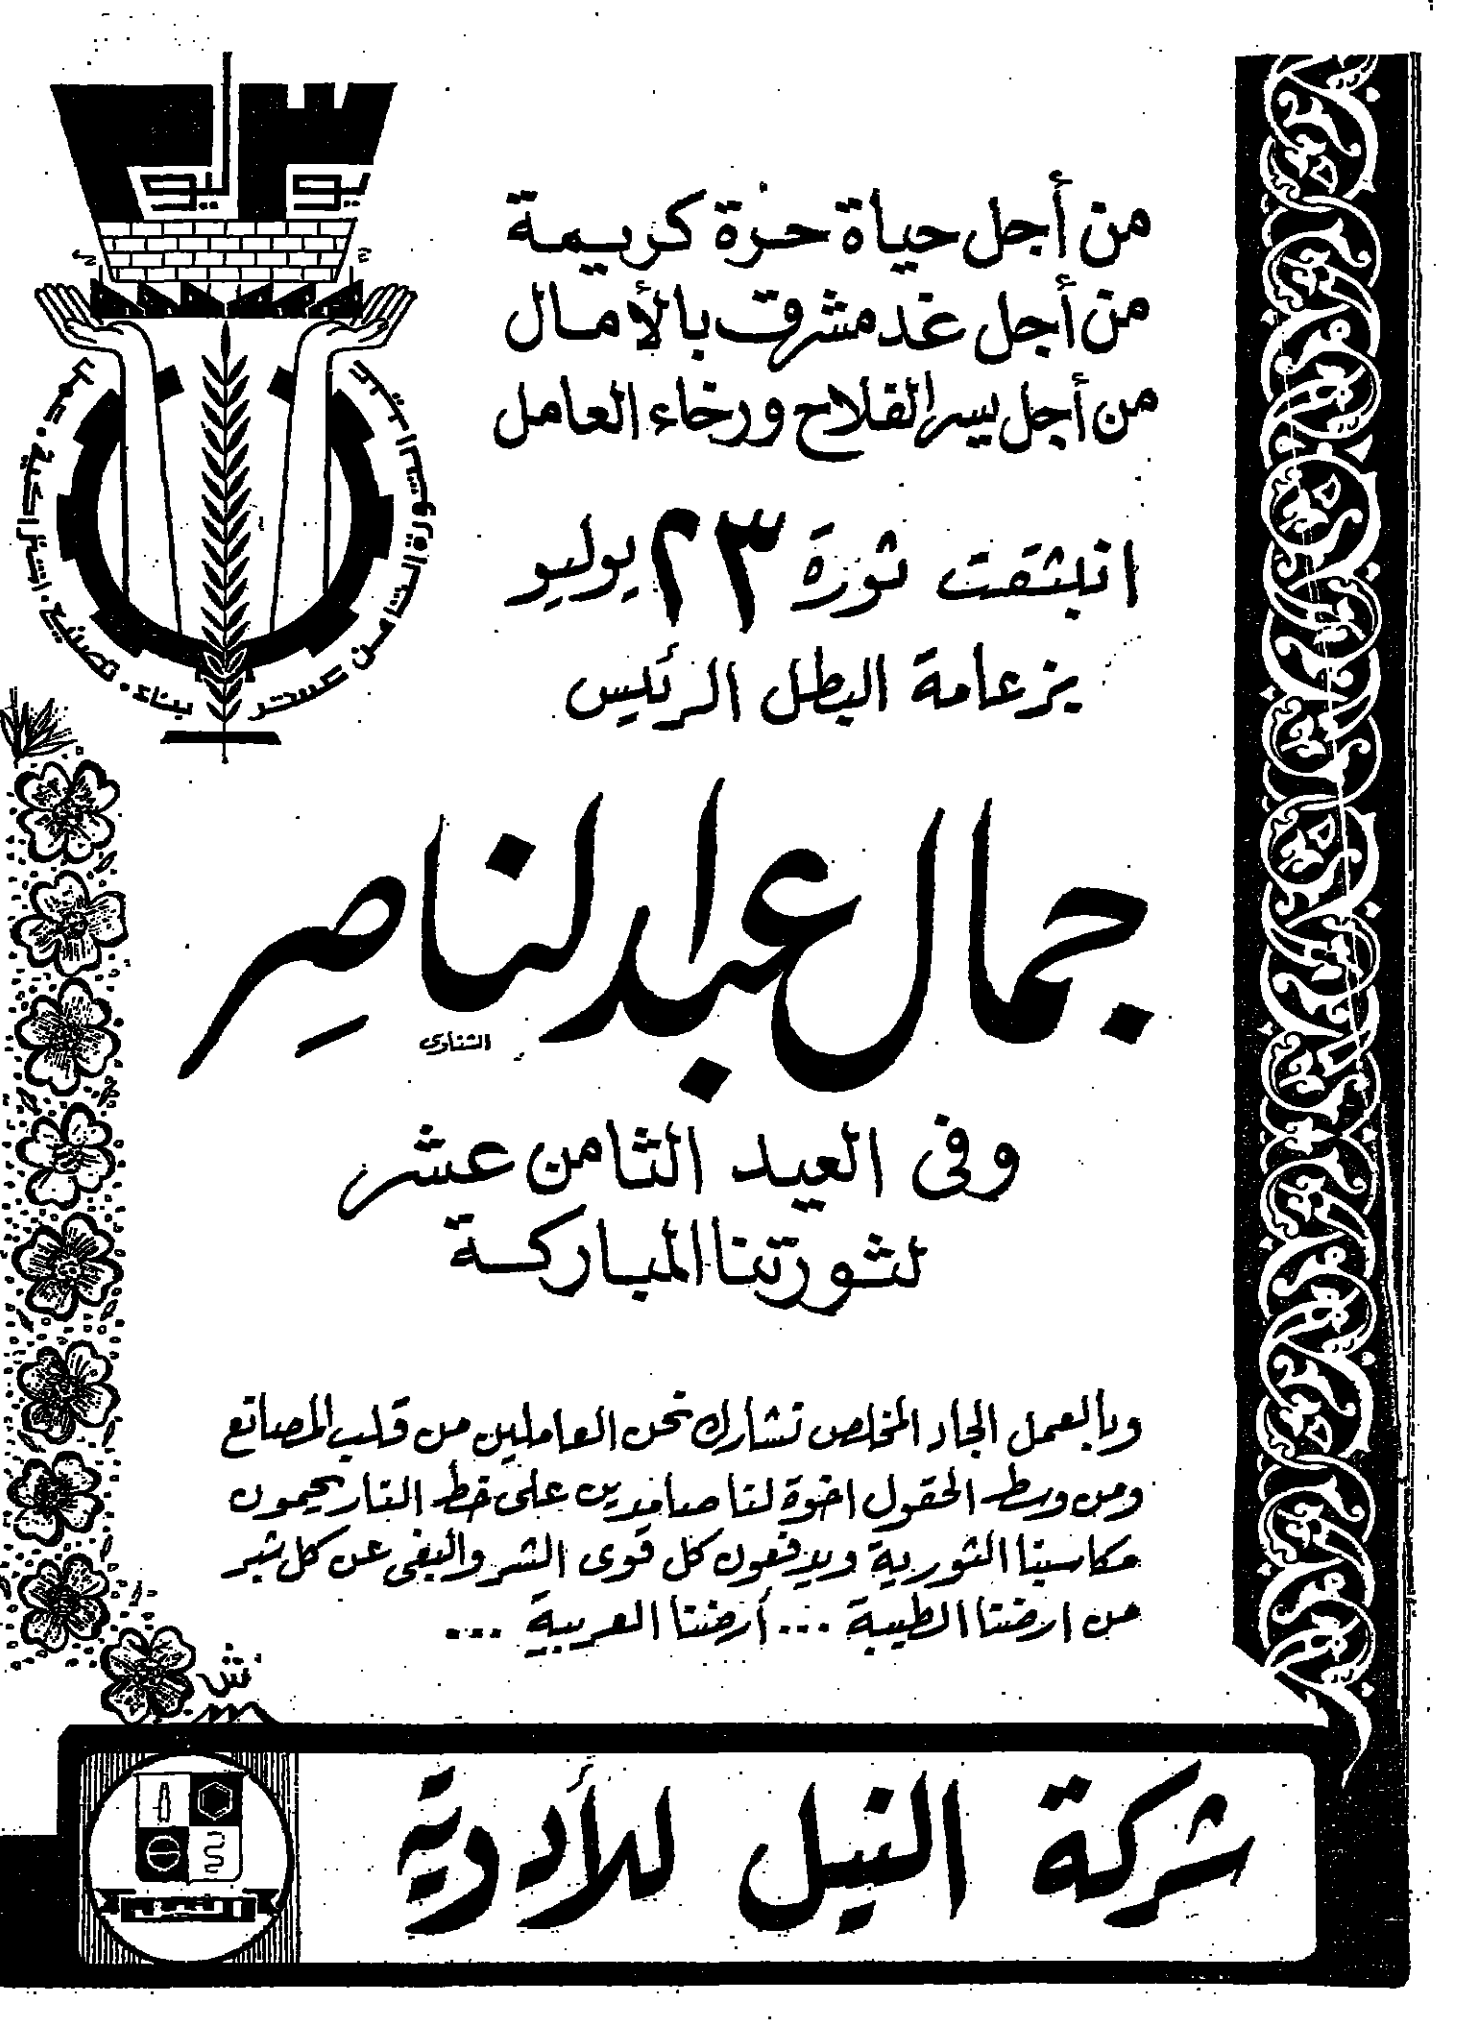 ٢٣
يوليو
من أجل حياة حرة كريمة
من أجل غد مشرق بالأمال
من أجل يسر الفلاح ورخاء العامل
انبثقت ثورة ٢٣ يوليو
بزعامة البطل الرئيس
جمال عبد الناصر
الشناوى
وفى العيد الثامن عشر
لثورتنا المباركة
وبالعمل الجاد المخلص نشارك نحن العاملين من قلب المصانع
ومن وسط الحقول اخوة لنا صامدين على خط النار يحيمون
مكاسبنا الثورية ويدفعون كل قوى الشر والبغى عن كل شبر
من ارضنا الطيبة ... أرضنا العربية ...
شركة النيل للأدوية